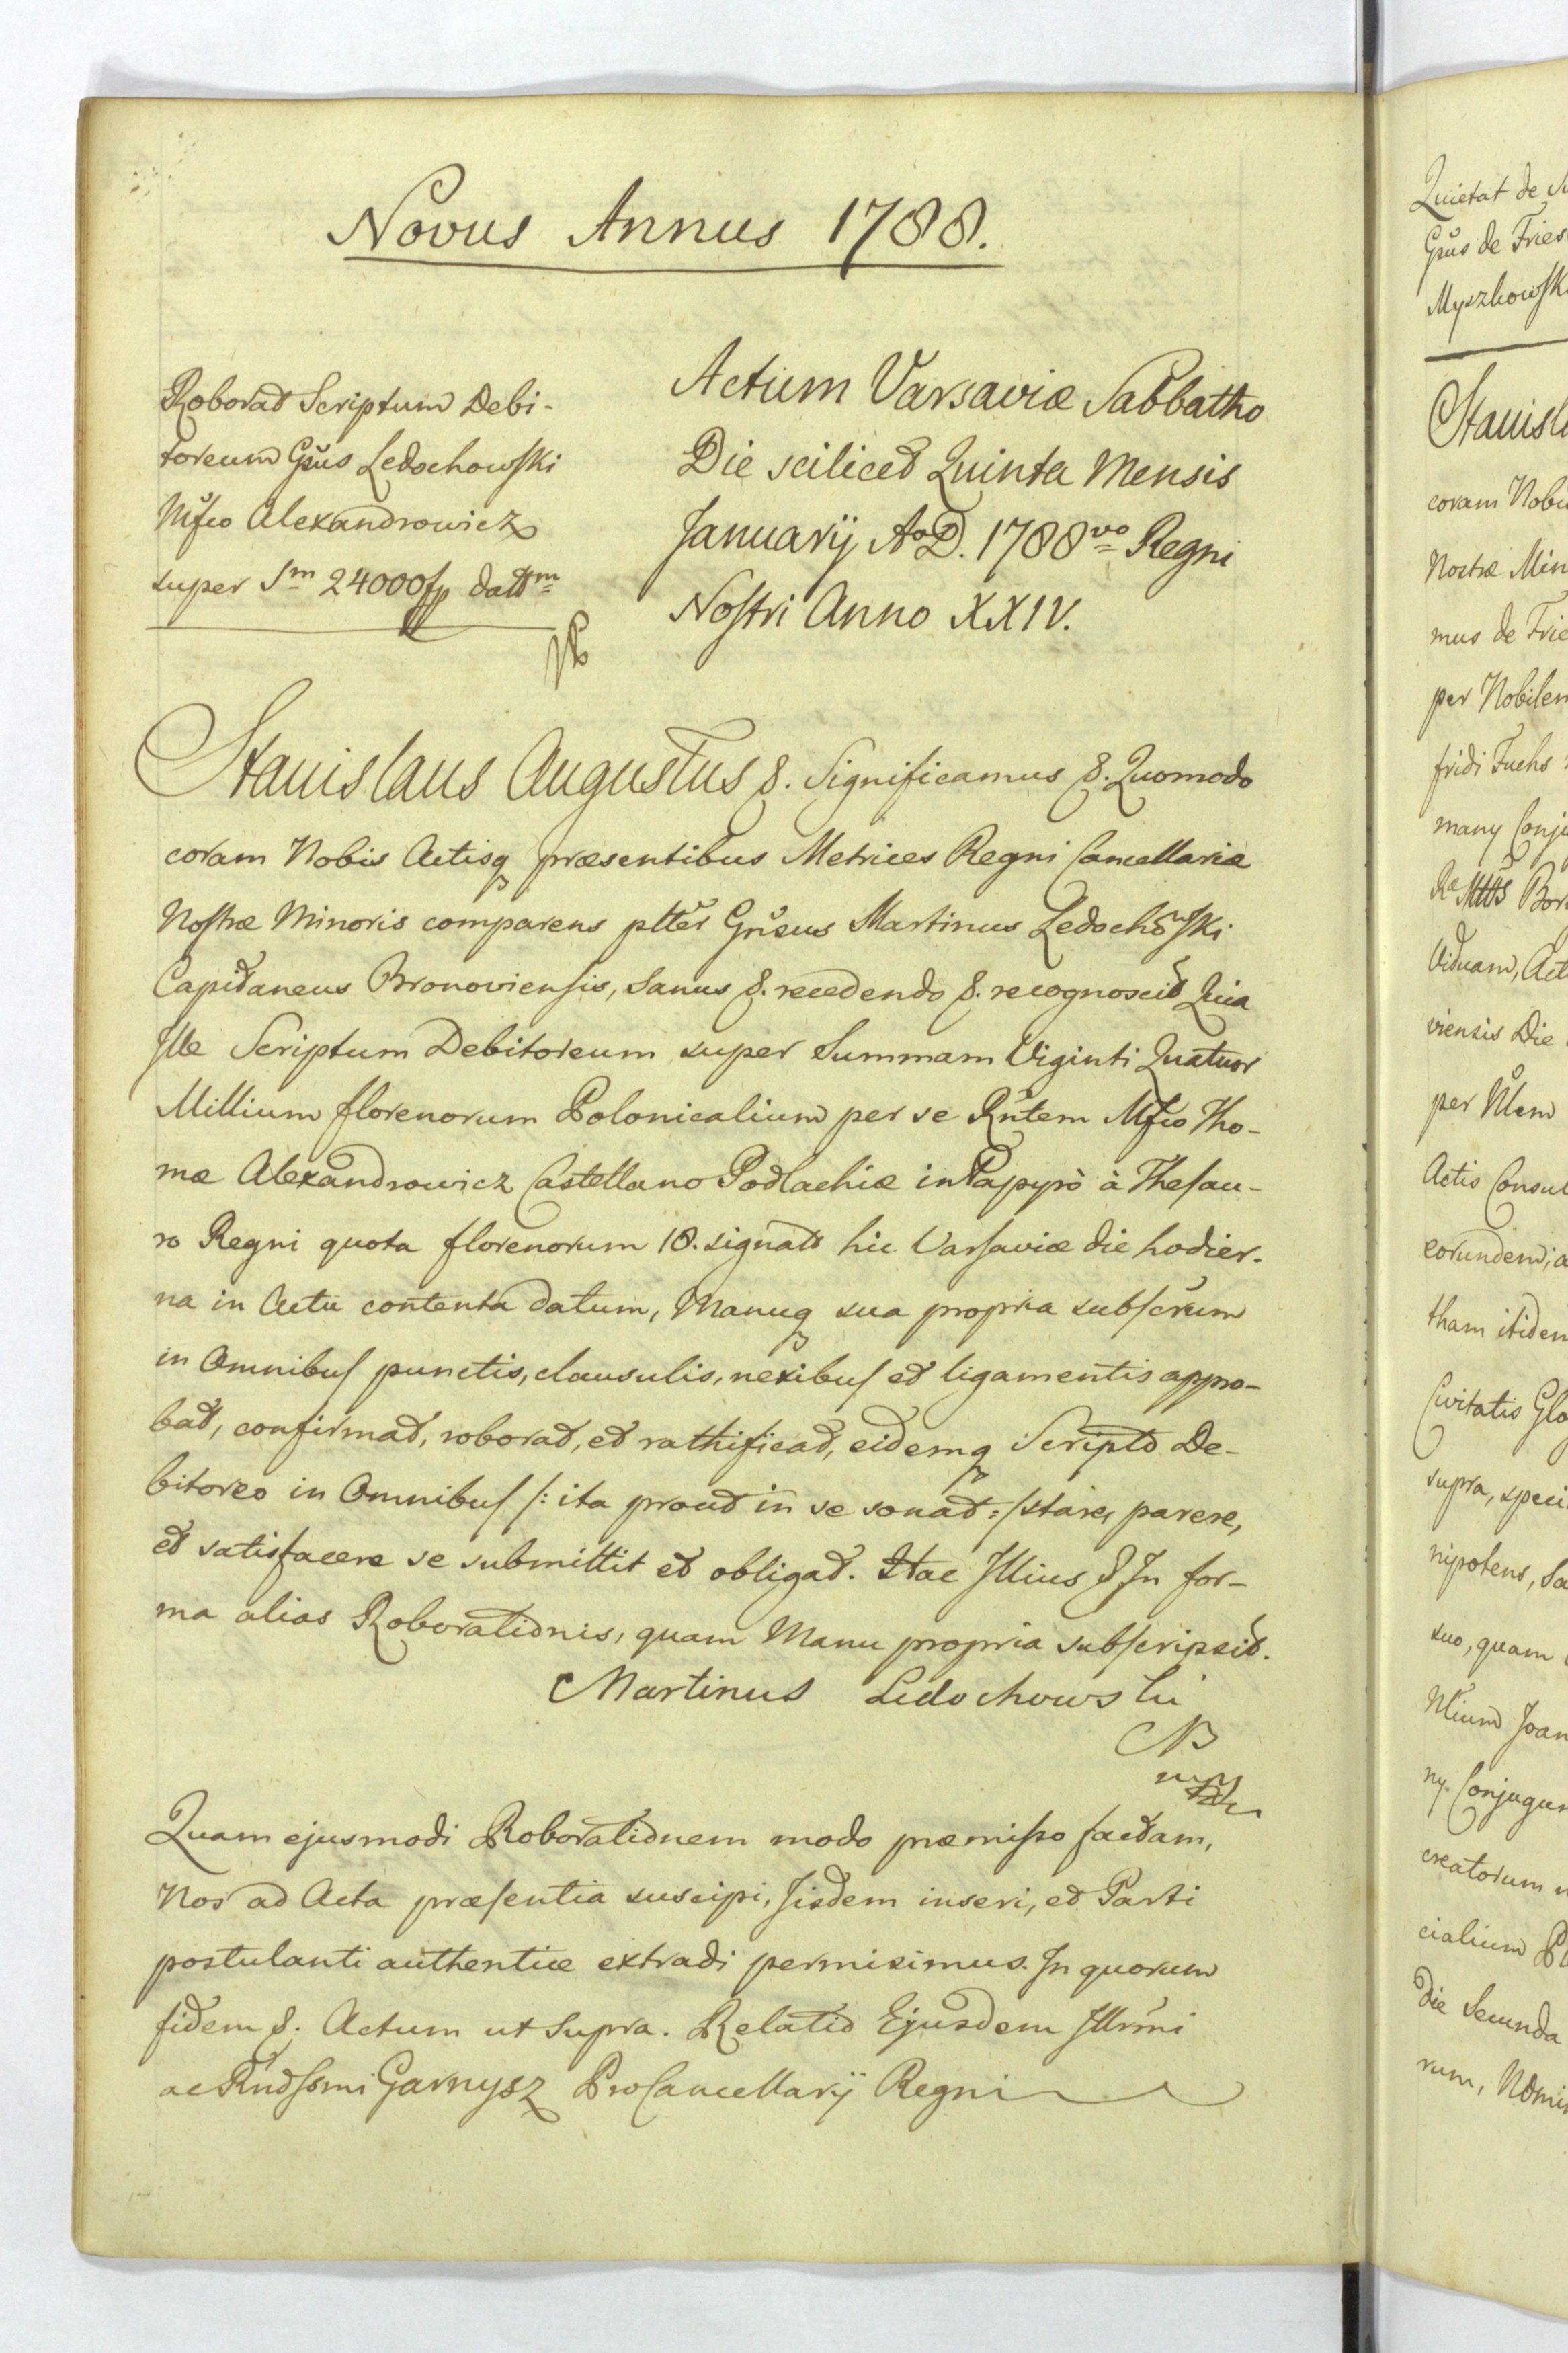 Novus Annus 1788.
Roborat Scriptum Debi-
toreum Gsus Ledochowski
Mfco Alexandrowicz
super Sm 24000 fp dattm
Actum Varsaviæ Sabbatho
Die scilicet Quinta Mensis
Januarij Ao D. 1788vo Regni
Nostri Anno XXIV.
Stanislaus Augustus &. Significamus &. Quomodo
coram Nobis Actisq præsentibus Metrices Regni Cancellariæ
Nostræ Minoris comparens pltter Gnsus Martinus Ledochowski
Capitaneus Bronoviensis, sanus &. recedendo &. recognoscit Quia
Ille Scriptum Debitoreum super Summam Viginti Quatuor
Millium florenorum Polonicalium per se Rntem Mfco Tho-
mæ Alexandrowicz Castellano Podlachiæ in Papyro à Thesau-
ro Regni quota florenorum 18. signato hic Varsaviæ die hodier-
na in Actu contenta datum, Manuq sua propria subscrum
in Omnibus punctis, clausulis, nexibus et ligamentis appro-
bat, confirmat, roborat, et rathificat, eidemq Scripto De-
bitoreo in Omnibus /: ita prout in se sonat :/ stare, parere,
et satisfacere se submittit et obligat. Hac Illius & In for-
ma alias Roborationis, quam Manu propria subscripsit.
Martinus Ledochowski
Quam ejusmodi Roborationem modo præmisso factam,
Nos ad Acta præsentia suscipi, Iisdem inseri, et Parti
postulanti authentice extradi permisimus. In quorum
fidem &. Actum ut supra. Relatio Ejusdem Illrmi
ac Rndssmi Garnysz ProCancellarij Regni
Quietat de
Gsus de Fries
Myszkowsk
Stanisl
coram Nobi
Nostræ Min
mus de Frie
per Nobilem
fridi Fuchs
many Conju
Viduam, Act
viensis Die
per
Actis Consul
eorundem, a
tham itidem
Civitatis Glo
supra, speci
nipotens, Sa
suo, quam
Joan
ny. Conjugum
creatorum
cialium
die Secunda
rum, Nomi